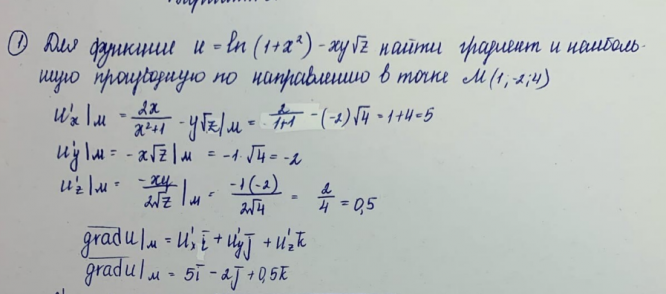 ① Для функции u = ln(1+x²) - xy√z найти градиент и наиболь-
шую производную по направлению в точке M(1,-2,4)
u'x|м = 2x/(x²+1) - y√z|м = 2/(1+1) - (-2)√4 = 1+4 = 5
u'y|м = -x√z|м = -1·√4 = -2
u'z|м = -xy/(2√z)|м = -1(-2)/(2√4) = 2/4 = 0,5
gradu|м = u'x i̅ + u'y j̅ + u'z k̅
gradu|м = 5i̅ - 2j̅ + 0,5k̅